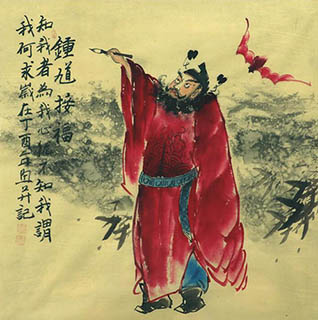 鍾馗接福
知我者為我心憂不知我謂
我何求歲在丁酉年
記